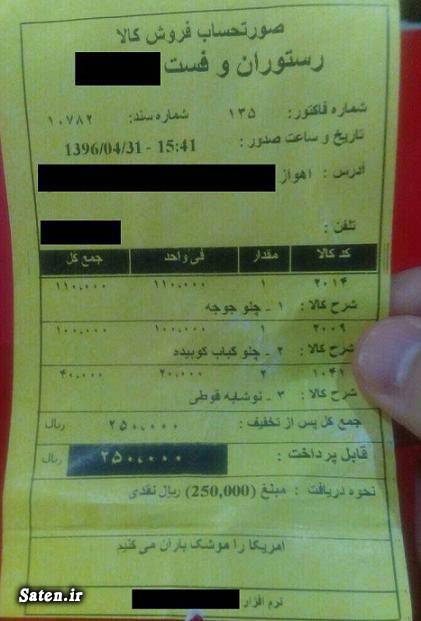 صورتحساب فروش کالا
رستوران و فست
شماره فاکتور: ۱۳۵ شماره سند: ۱۰۷۸۲
تاریخ و ساعت صدور: 15:41 - 1396/04/31
آدرس: اهواز
تلفن:
کد کالا مقدار فی واحد جمع کل
۲۰۱۴ ۱ ۱۱۰،۰۰۰ ۱۱۰،۰۰۰
شرح کالا: ۱ - چلو جوجه
۲۰۰۹ ۱ ۱۰۰،۰۰۰ ۱۰۰،۰۰۰
شرح کالا: ۲ - چلو کباب کوبیده
۱۰۴۱ ۲ ۲۰،۰۰۰ ۴۰،۰۰۰
شرح کالا: ۳ - نوشابه قوطی
جمع کل پس از تخفیف: ۲۵۰،۰۰۰ ریال
قابل پرداخت: ۲۵۰،۰۰۰ ریال
نحوه دریافت: مبلغ (250,000) ریال نقدی
امریکا را موشک باران می کنیم
نرم افزار
Saten.ir